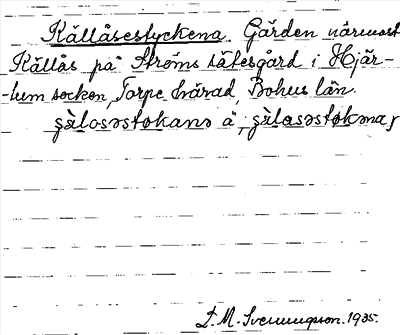 Källåsestyckena. Gården närmast
Källås på Ströms sätesgård i Hjär-
-tum socken, Torpe härad, Bohus län.
şàlosəstøkanə ä, şàlosəstøkna,
D. M. Svenungsson. 1935.